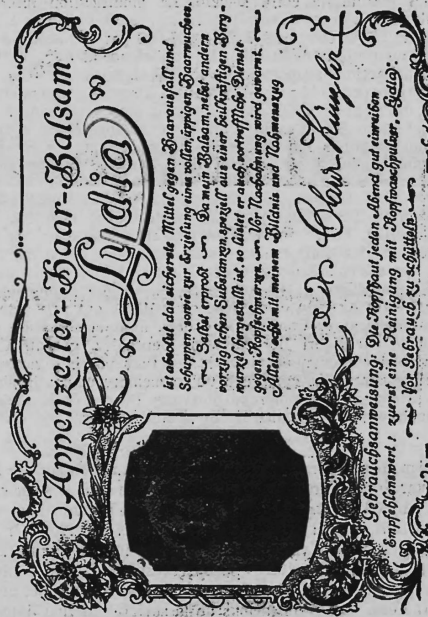 Appenzeller-Haar-Balsam
Lydia
ist absolut das sicherste Mittel gegen Haarausfall und
Schuppen, sowie zur Erzielung eines vollen, üppigen Haarwuchses.
Selbst erprobt Da mein Balsam, nebst andern
vorzüglichen Substanzen, speziell aus einer heilkräftigen Berg-
wurzel hergestellt ist, so leistet er auch vortreffliche Dienste
gegen Kopfschmerzen. Vor Nachahmung wird gewarnt.
Allein echt mit meinem Bildnis und Nahmenszug
Clara Küngler
Gebrauchsanweisung: Die Kopfhaut jeden Abend gut einreiben
Empfehlenswert: zuerst eine Reinigung mit Kopfwaschpulver „Lydia“.
Vor Gebrauch zu schütteln